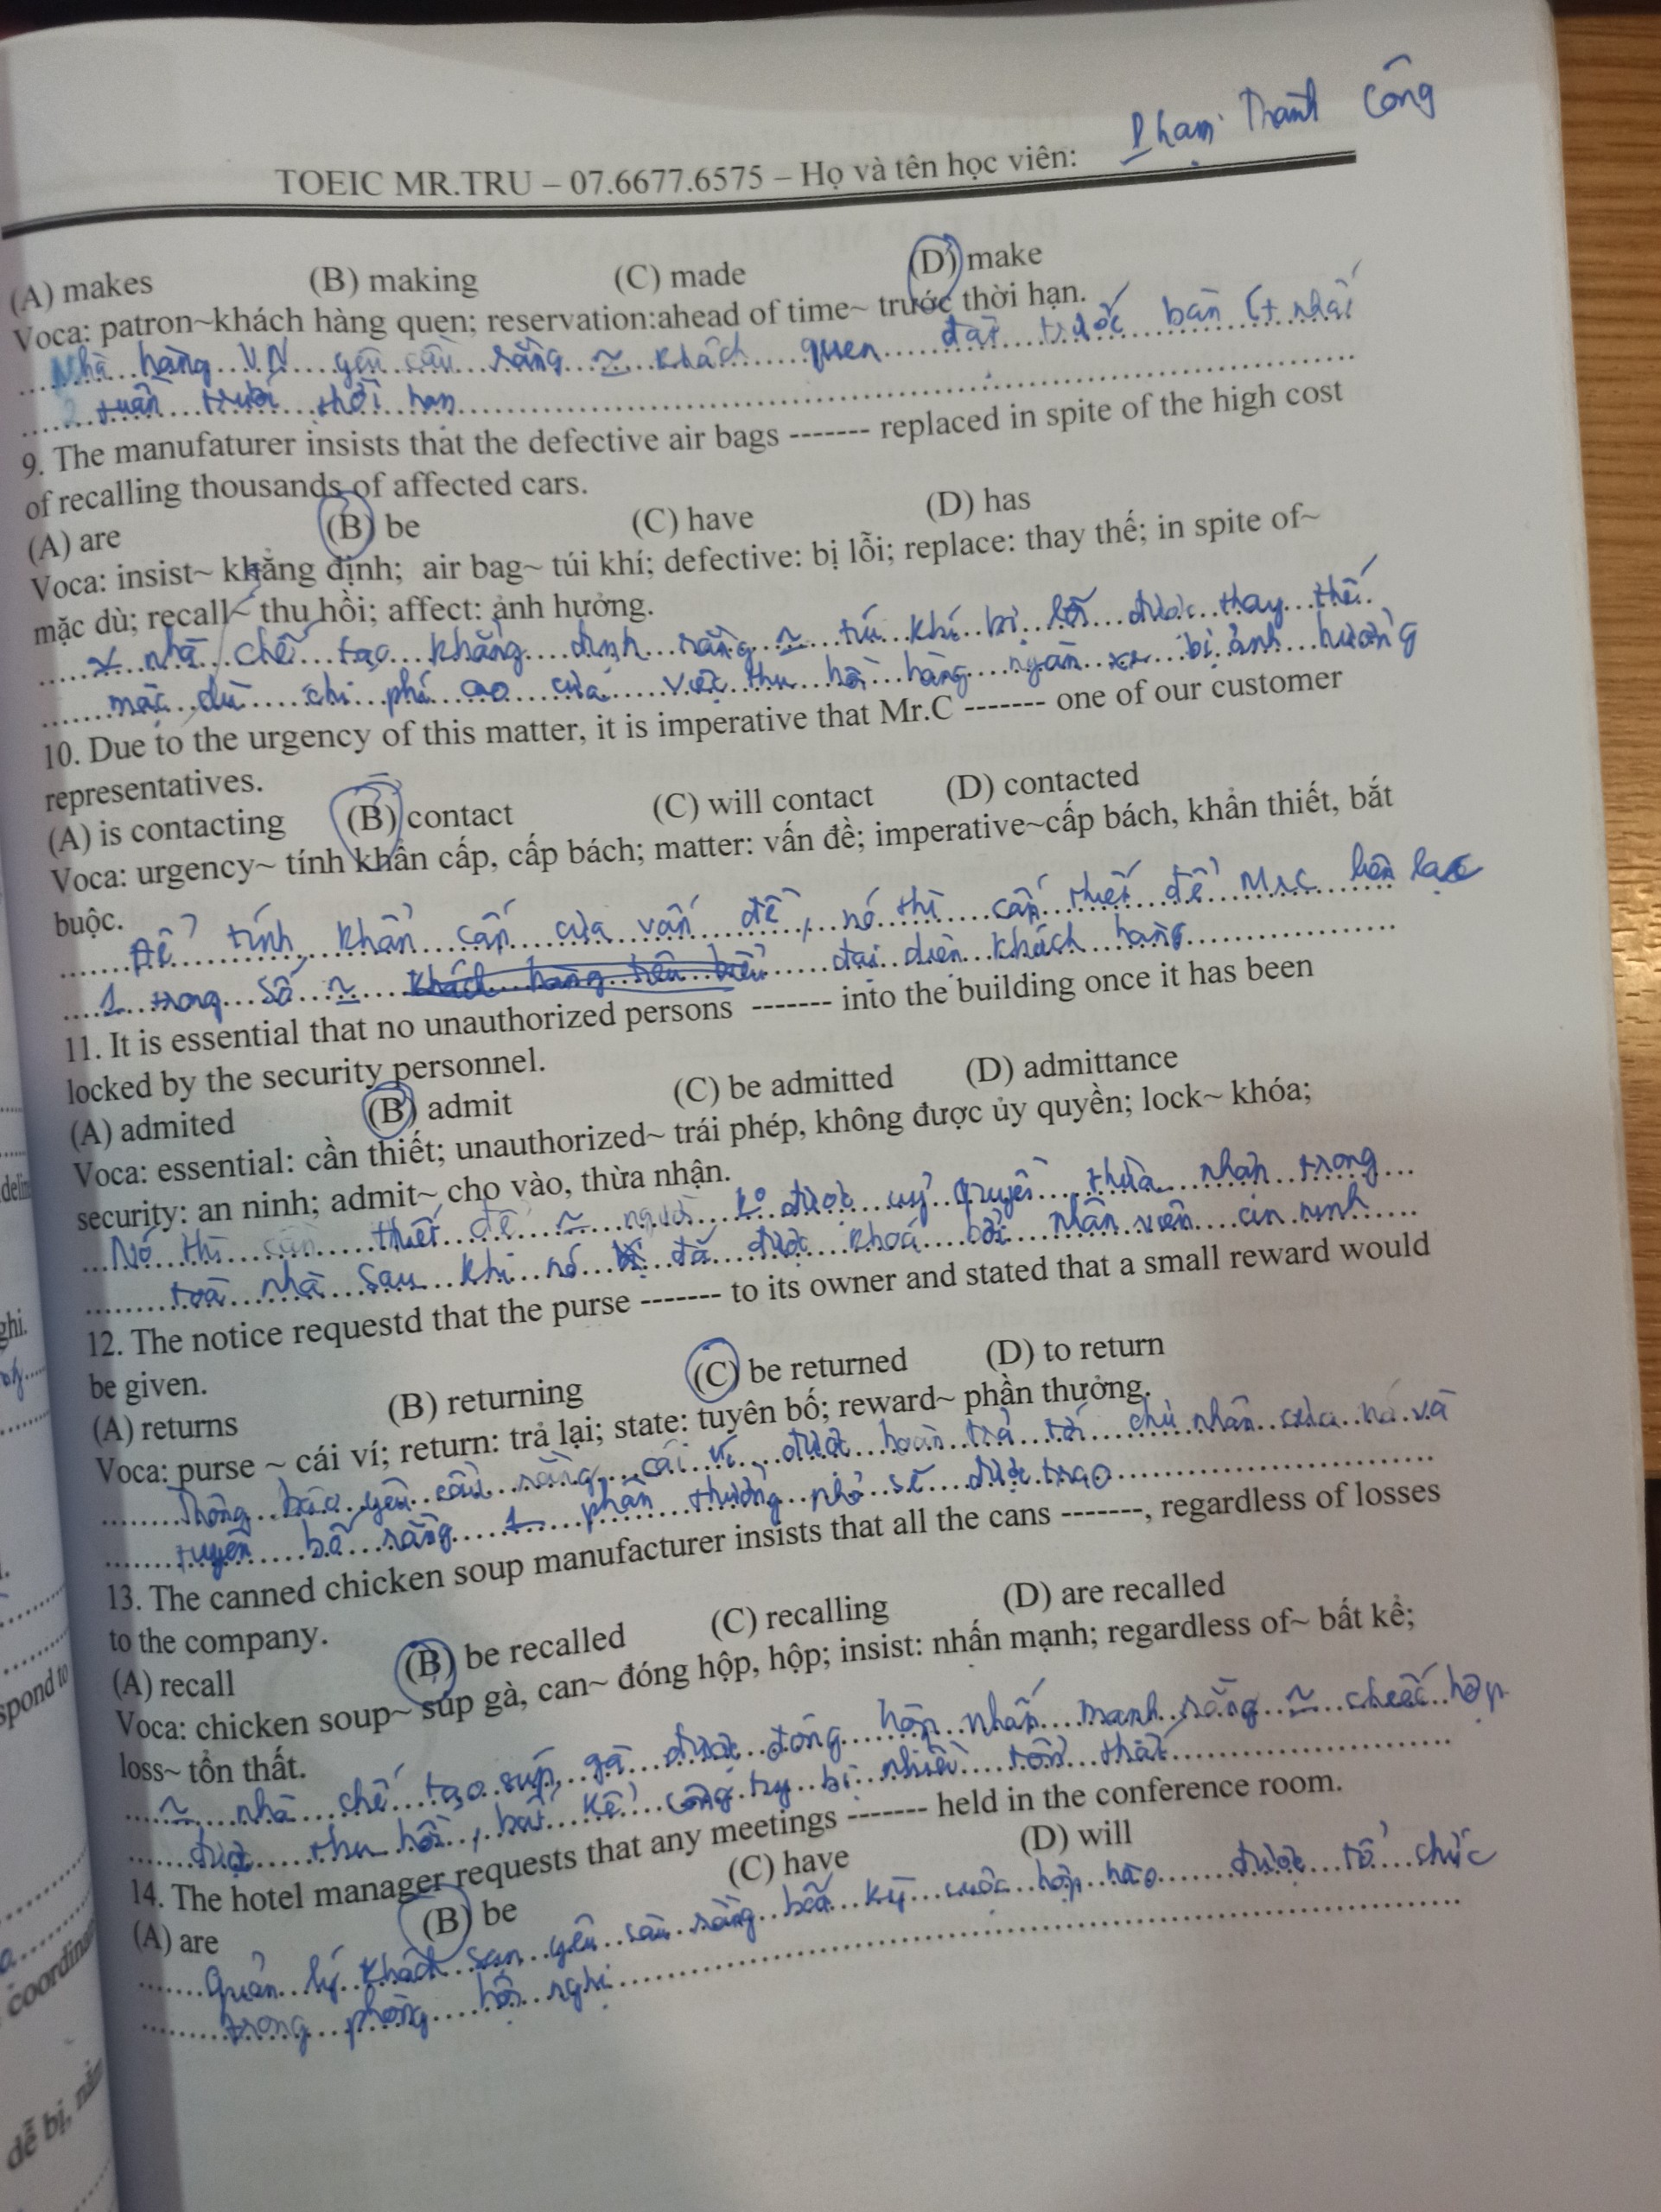 Phạm Thành Công
TOEIC MR.TRU – 07.6677.6575 – Họ và tên học viên:
(A) makes (B) making (C) made (D) make
Voca: patron~khách hàng quen; reservation:ahead of time~ trước thời hạn.
Nhà hàng VN yêu cầu rằng ~ khách quen đặt trước bàn ít nhất
2 tuần trước thời hạn
9. The manufaturer insists that the defective air bags ------- replaced in spite of the high cost
of recalling thousands of affected cars.
(A) are (B) be (C) have (D) has
Voca: insist~ khẳng định; air bag~ túi khí; defective: bị lỗi; replace: thay thế; in spite of~
mặc dù; recall~ thu hồi; affect: ảnh hưởng.
nhà chế tạo khẳng định rằng ~ túi khí bị lỗi được thay thế
mặc dù chi phí cao của việc thu hồi hàng ngàn xe bị ảnh hưởng
10. Due to the urgency of this matter, it is imperative that Mr.C ------- one of our customer
representatives.
(A) is contacting (B) contact (C) will contact (D) contacted
Voca: urgency~ tính khẩn cấp, cấp bách; matter: vấn đề; imperative~cấp bách, khẩn thiết, bắt
buộc.
Để tính khẩn cấp của vấn đề, nó thì cần thiết để Mr.C liên lạc
1 trong số ~ đại diện khách hàng
11. It is essential that no unauthorized persons ------- into the building once it has been
locked by the security personnel.
(A) admited (B) admit (C) be admitted (D) admittance
Voca: essential: cần thiết; unauthorized~ trái phép, không được ủy quyền; lock~ khóa;
security: an ninh; admit~ cho vào, thừa nhận.
Nó thì cần thiết để ~ người ko được uỷ quyền thừa nhận trong
toà nhà sau khi nó đã được khoá bởi nhân viên an ninh
12. The notice requestd that the purse ------- to its owner and stated that a small reward would
be given.
(A) returns (B) returning (C) be returned (D) to return
Voca: purse ~ cái ví; return: trả lại; state: tuyên bố; reward~ phần thưởng.
Thông báo yêu cầu rằng cái ví được hoàn trả tới chủ nhân của nó và
tuyên bố rằng 1 phần thưởng nhỏ sẽ được trao
13. The canned chicken soup manufacturer insists that all the cans -------, regardless of losses
to the company.
(A) recall (B) be recalled (C) recalling (D) are recalled
Voca: chicken soup~ súp gà, can~ đóng hộp, hộp; insist: nhấn mạnh; regardless of~ bất kể;
loss~ tổn thất.
~ nhà chế tạo súp gà được đóng hộp nhấn mạnh rằng ~ chiếc hộp
được thu hồi, bất kể công ty bị nhiều tổn thất
14. The hotel manager requests that any meetings ------- held in the conference room.
(A) are (B) be (C) have (D) will
Quản lý khách sạn yêu cầu rằng bất kỳ cuộc họp nào được tổ chức
trong phòng hội nghị